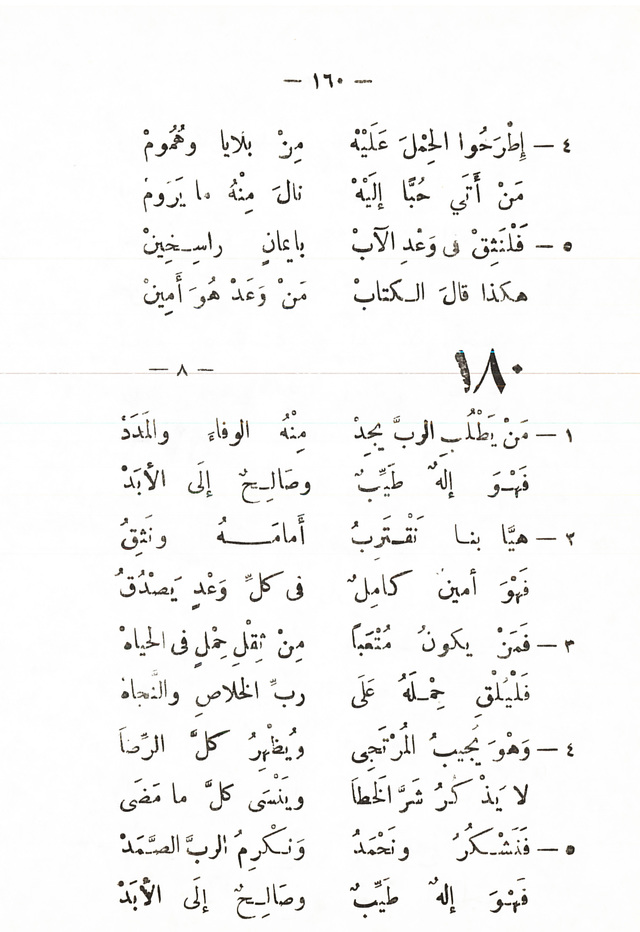 — ١٦٠ —
٤ — إِطْرَحُوا الحِمْلَ عَلَيْهْ مِنْ بلايا وهُمُومْ
مَنْ أَتَي حُبًّا إلَيْهْ نالَ مِنْهُ ما يَرَومْ
٥ — فَلْنَثِقْ فى وَعْدِ الآبْ بايمانٍ راسِـخِينْ
هكذا قالَ الـكتابْ مَنْ وَعَدْ هُوَ أَمِينْ
١٨٠ — ٨ —
١ — مَنْ يَطْلُبِ الربَّ يجِدْ مِنْهُ الوفاءِ والمَدَدْ
فَهْـوَ إلهٌ طَيِّبٌ وصَالِـحٌ إلَى الأبَدْ
٣ — هيَّا بنـا نَقْـتَرِبُ أَمامَـــهُ ونَثِقُ
فَهْوَ أمينٌ كامِلٌ فى كلِّ وَعْدٍ يَصْدُقُ
٣ — فَمَنْ يكونُ مُتْعَباً مِنْ ثِقْلِ حِمْلٍ فى الحياهْ
فَلْيُلْقِ حِمْـلَهُ عَلَى ربِّ الخلاصِ والنَّجاهْ
٤ — وَهْوَ يُجيبُ المُرْتَجِى ويُظْهِرُ كلَّ الرِّضاَ
لا يَذْ كُرُ شَرَّ الخَطاَ ويَنْسَى كلَّ ما مَضَى
٥ — فَنَشْـكُرُ ونَحْمَدُ وَنـكْرِمُ الربَّ الصَّمَدْ
فَهْـوَ إلهٌ طَيِّبٌ وصَالِـحٌ إلَى الأبَدْ